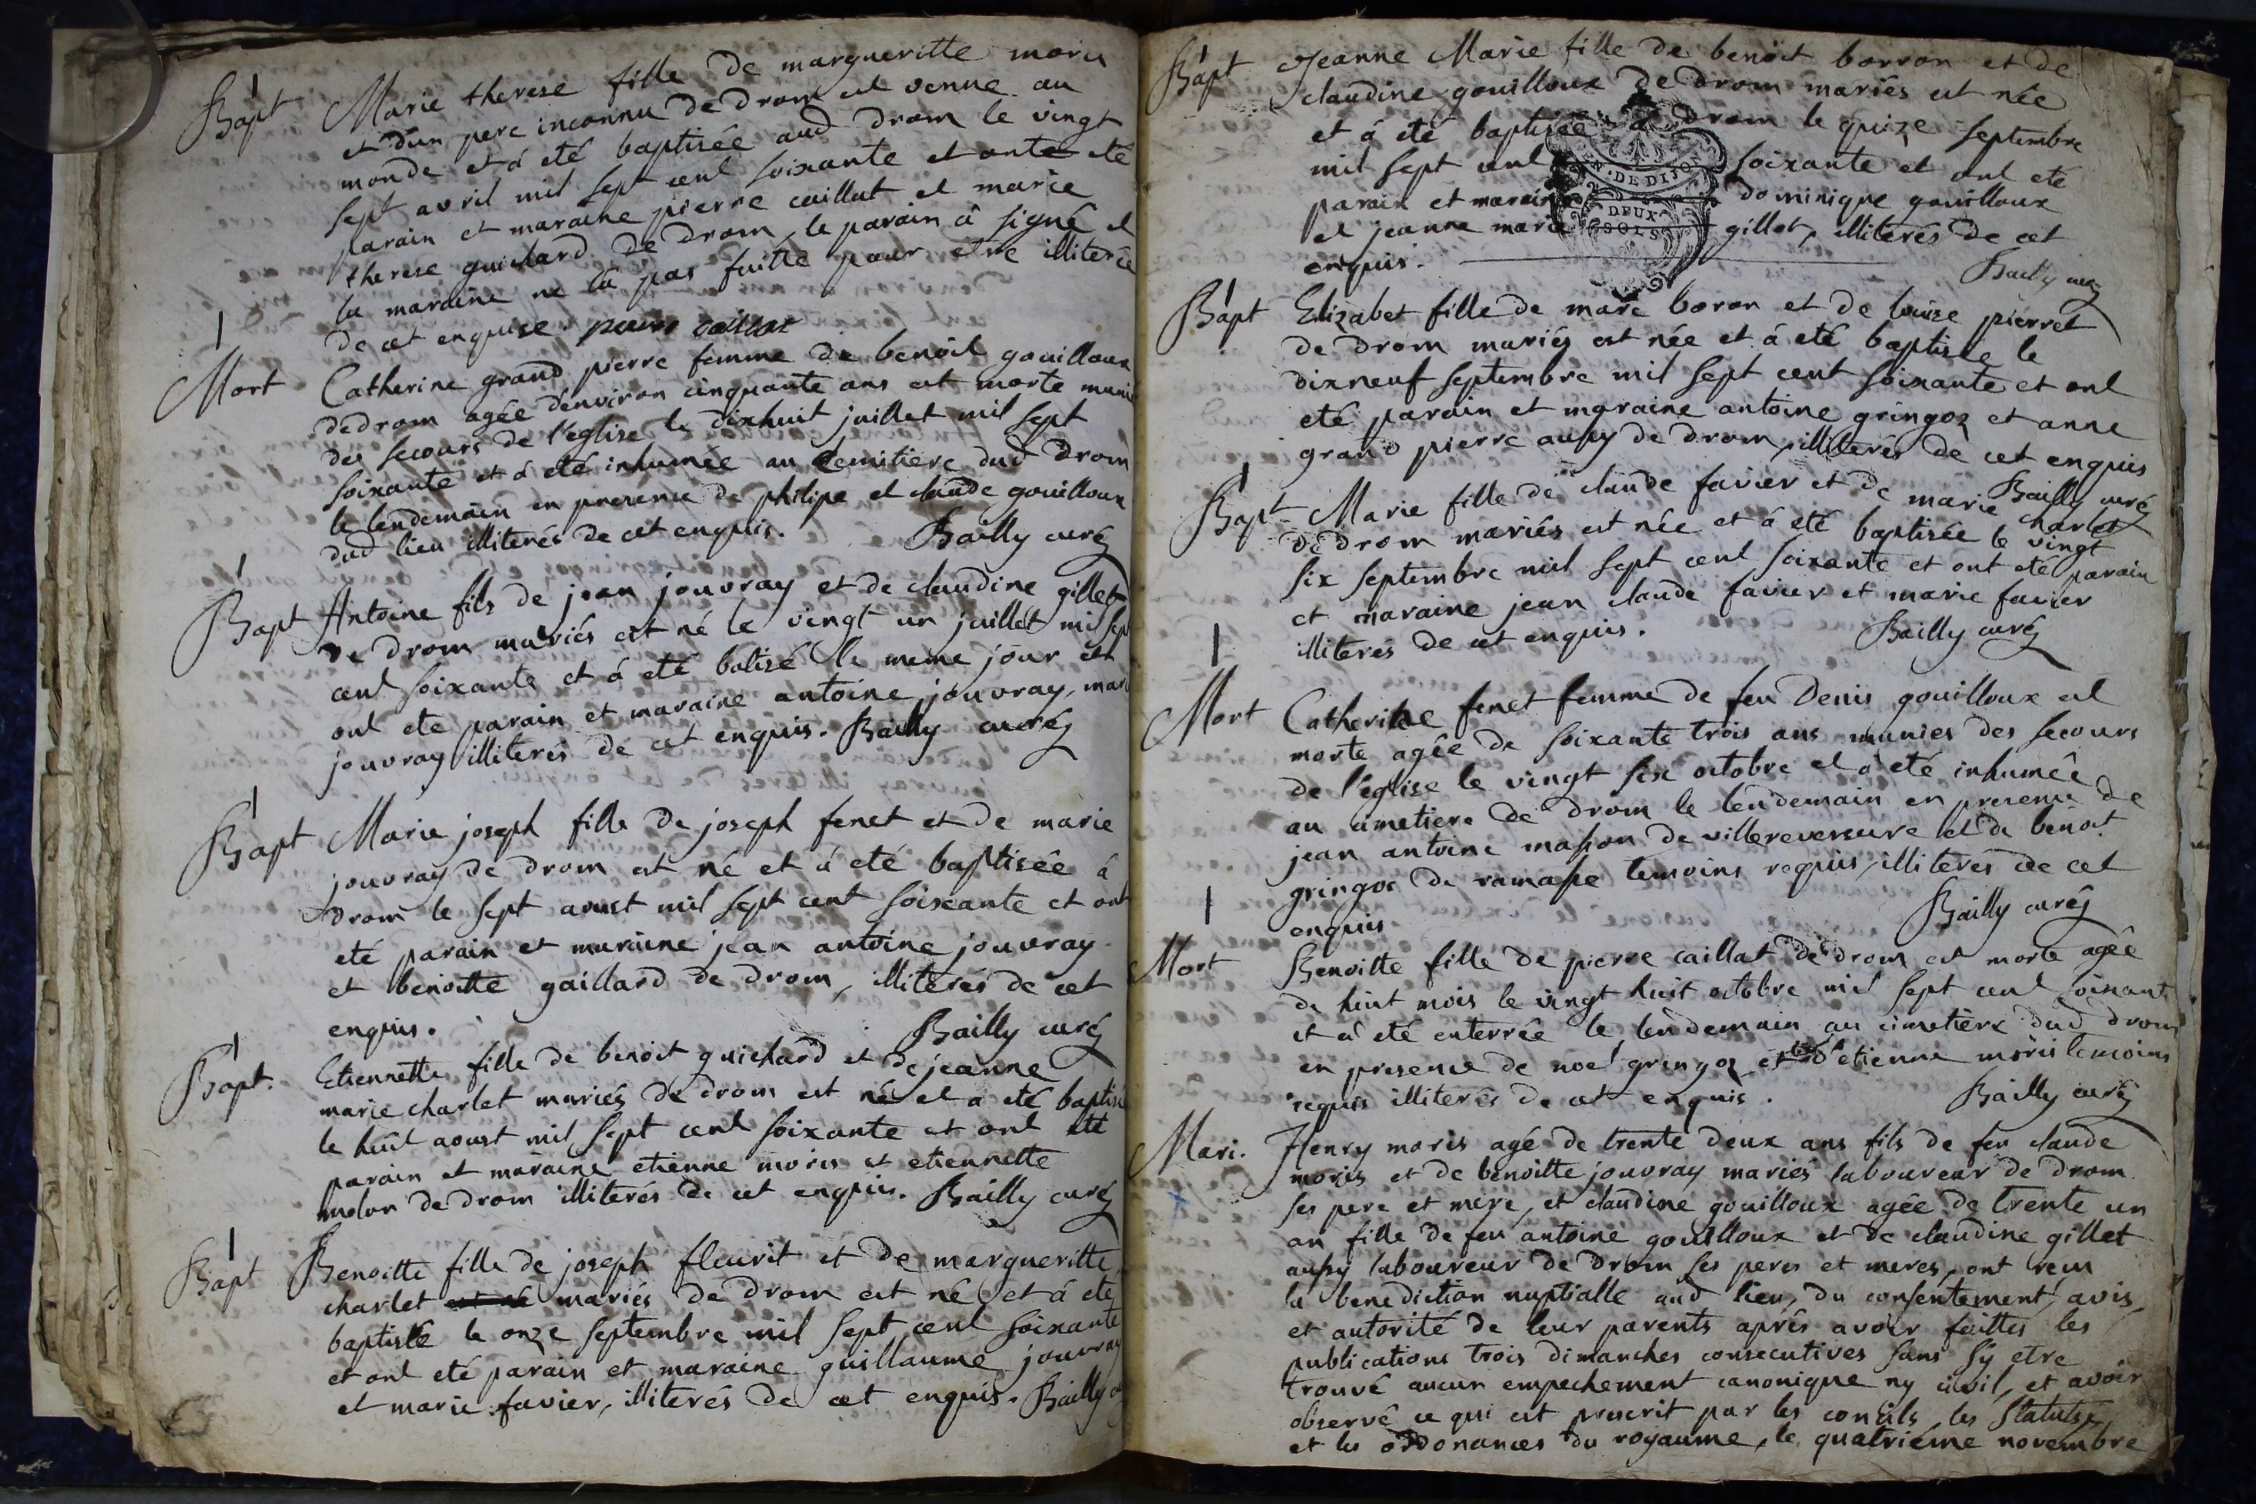 Bapt Marie therese fille de margueritte moris
et d'un pere inconnu de drom est venue au
monde et à été baptisée aud drom le vingt
sept avril mil sept cent soixante et ont été
parain et maraine pierre caillat et marie
therese guichard de drom, le parain à signé et
la maraine ne l'à pas faitte pour etre illiterée
de cet enquise. pierre caillat
Mort Catherine grand pierre femme de benoit gouilloux
de drom agée d'environ cinquante ans est morte munie
des secours de l'eglise le dixhuit juillet mil sept
soixante et à été inhumée au Cemitiere dud drom
le lendemain en presence de philipe et claude gouilloux
dud lieu illiterés de cet enquis. Bailly curé
Bapt Antoine fils de jean jouvray et de claudine gillet
de drom mariés est né le vingt un juillet mil sept
cent soixante et à été batisé le meme jour et
ont eté parain et maraine antoine jouvray, marie
jouvray illiterés de cet enquis. Bailly curé
Bapt Marie joseph fille de joseph fenet et de marie
jouvray de drom est né et à eté baptisée à
drom le sept aoust mil sept cent soixante et ont
eté parain et maraine jean antoine jouvray
et benoitte gaillard de drom, illiterés de cet
enquis. Bailly curé
Bapt. Etiennette fille de benoit guichard et de jeanne
marie charlet mariés de drom est né et a eté baptisée
le huit aoust mil sept cent soixante et ont eté
parain et maraine etienne moris et etiennette
molon de drom illiterés de cet enquis. Bailly curé
Bapt Benoitte fille de joseph fleurit et de margueritte
charlet est né mariés de drom est né et à eté
baptisée le onze septembre mil sept cent soixante
et ont eté parain et maraine guillaume jouvray
et marie favier, illiterés de cet enquis. Bailly
Bapt Jeanne Marie fille de benoit borron et de
claudine gouilloux de drom mariés est née
et à été baptisée à drom le quize septembre
mil sept cent soixante et ont eté
parain et maraine dominique gouilloux
et jeanne marie gillet, illiterés de cet
enquis. Bailly curé
EN. DE DIJON
DEUX
SOLS
Bapt Elizabet fille de marc boron et de louise pierret
de drom mariés est née et à eté baptisée le
dixneuf septembre mil sept cent soixante et ont
eté parain et maraine antoine gringoz et anne
grand pierre aussy de drom, illiterés de cet enquis
Bailly curé
Bapt Marie fille de claude favier et de marie charlet
de drom mariés est née et à eté baptisée le vingt
six septembre mil sept cent soixante et ont eté parain
et maraine jean claude favier et marie favier
illiterés de cet enquis. Bailly curé
Mort Catherine fenet femme de feu Denis gouilloux est
morte agée de soixante trois ans munies des secours
de l'eglise le vingt six octobre et à eté inhumée
au cimetiere de drom le lendemain en presence de
jean antoine masson de villereversure et de benoit
gringoz de ramasse temoins requis, illiterés de cet
enquis Bailly curé
Mort Benoitte fille de pierre caillat de drom est morte agée
de huit mois le vingt huit octobre mil sept cent soixant
et à eté enterrée le lendemain au cimetière dud drom
en presence de noel gringoz et d'etienne moris temoins
requis illiterés de cet enquis. Bailly curé
Mari. Henry moris agé de trente deux ans fils de feu claude
moris et de benoitte jouvray mariés laboureur de drom
ses pere et mere, et claudine gouilloux agée de trente un
an fille de feu antoine gouilloux et de claudine gillet
aussy laboureur de drom ses peres et meres, ont reçu
la benediction nuptialle aud lieu, du consentement, avis,
et autorité de leur parents après avoir faittes les
publications trois dimanches consecutives sans s'y etre
trouvé aucun empechement canonique ny civil, et avoir
observé ce qui est prescrit par les concils, les statuts,
et les ordonances du royaume, le quatrieme novembre